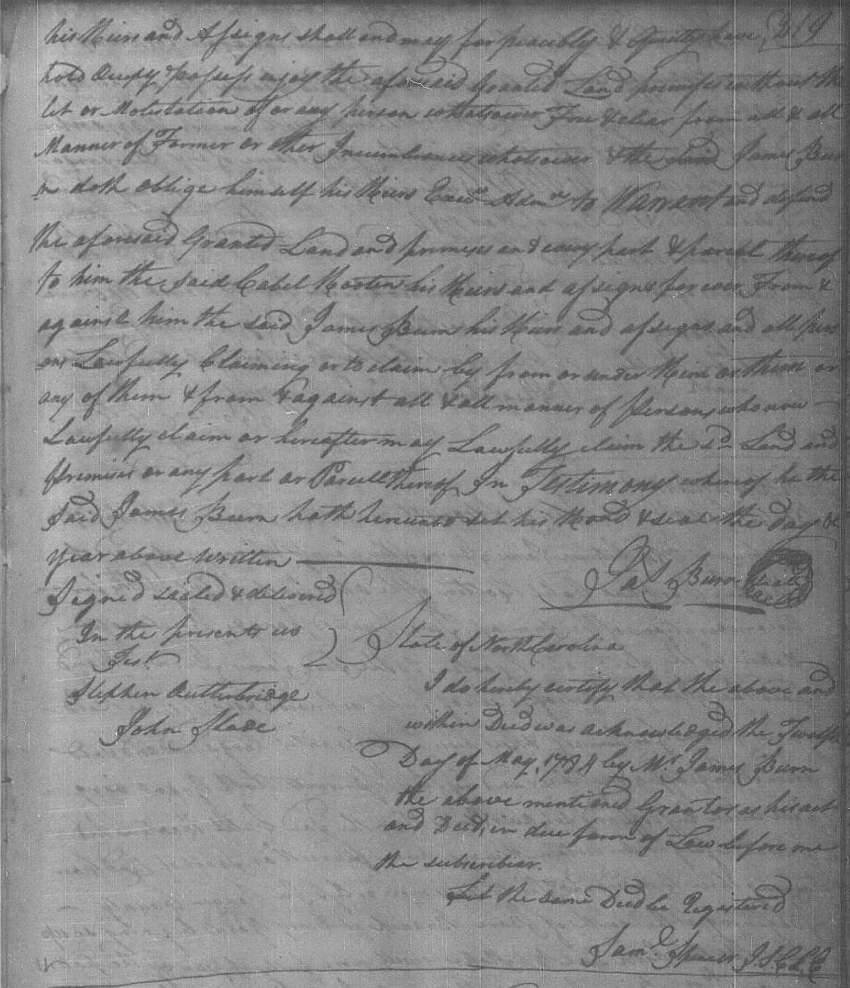 his Heirs and Assigns shall and may for peacibly & Quietly have 219
hold Occupy & possess enjoy the aforesaid Granted Land premises without the
let or Molestation of or any person whatsoever Free & clear from all & all
Manner of Former or other Incumbrances whatsoever & the Said James Bur
n doth oblige himself his Heirs Exec.rs Adm.rs to Warrant and defend
the aforesaid Granted Land and premises and every part & parcel thereof
to him the said Cabel Hooten his Heirs and assigns for ever From &
against him the said James Burn his Heirs and assigns and all pers
ons Lawfully Claiming or to claim by from or under Him or them or
any of them & from & against all & all manner of Persons who now
Lawfully claim or hereafter may Lawfully claim the s.d Land and
Premises or any part or Parcell thereof In Testimony whereof he the
Said James Burn hath hereunto set his Hand & seal the day &
year above written
Jas Burn
Signed sealed & delivered
In the presents us
Test
Stephen Outterbridge
John Slade
State of North Carolina
I do hereby certify that the above and
within Deed was acknowledged the Twelfth
Day of May, 1784 by Mr. James Burn
the above mentioned Grantor as his act
and Deed, in due form of Law before me
the subscriber.
Let the same Deed be Registered
Sam.l Spencer J.S.C.L.E